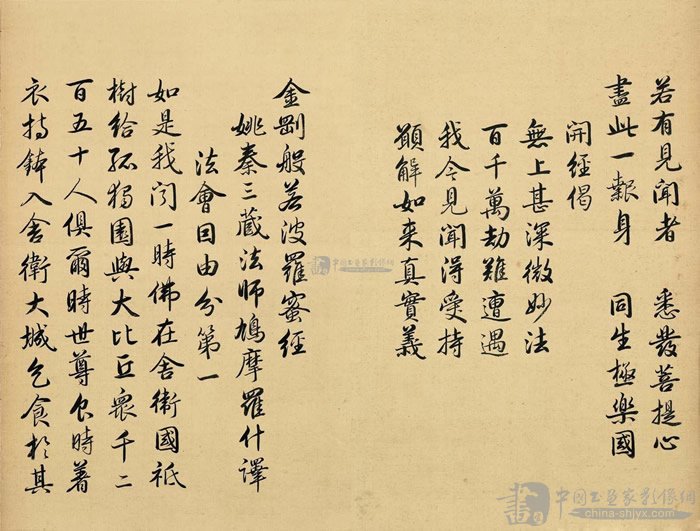 若有見聞者 悉發菩提心
盡此一報身 同生極樂國
開經偈
無上甚深微妙法
百千萬劫難遭遇
我今見聞得受持
願解如来真實義
金剛般若波羅蜜經
姚秦三藏法師鳩摩羅什譯
法會因由分第一
如是我闻一時佛在舍衛國祇
樹給孤獨園與大比丘衆千二
百五十人俱爾時世尊食時著
衣持鉢入舍衛大城乞食於其
中国书画家影像網
書 中国书画家影像網
china-shjyx.com